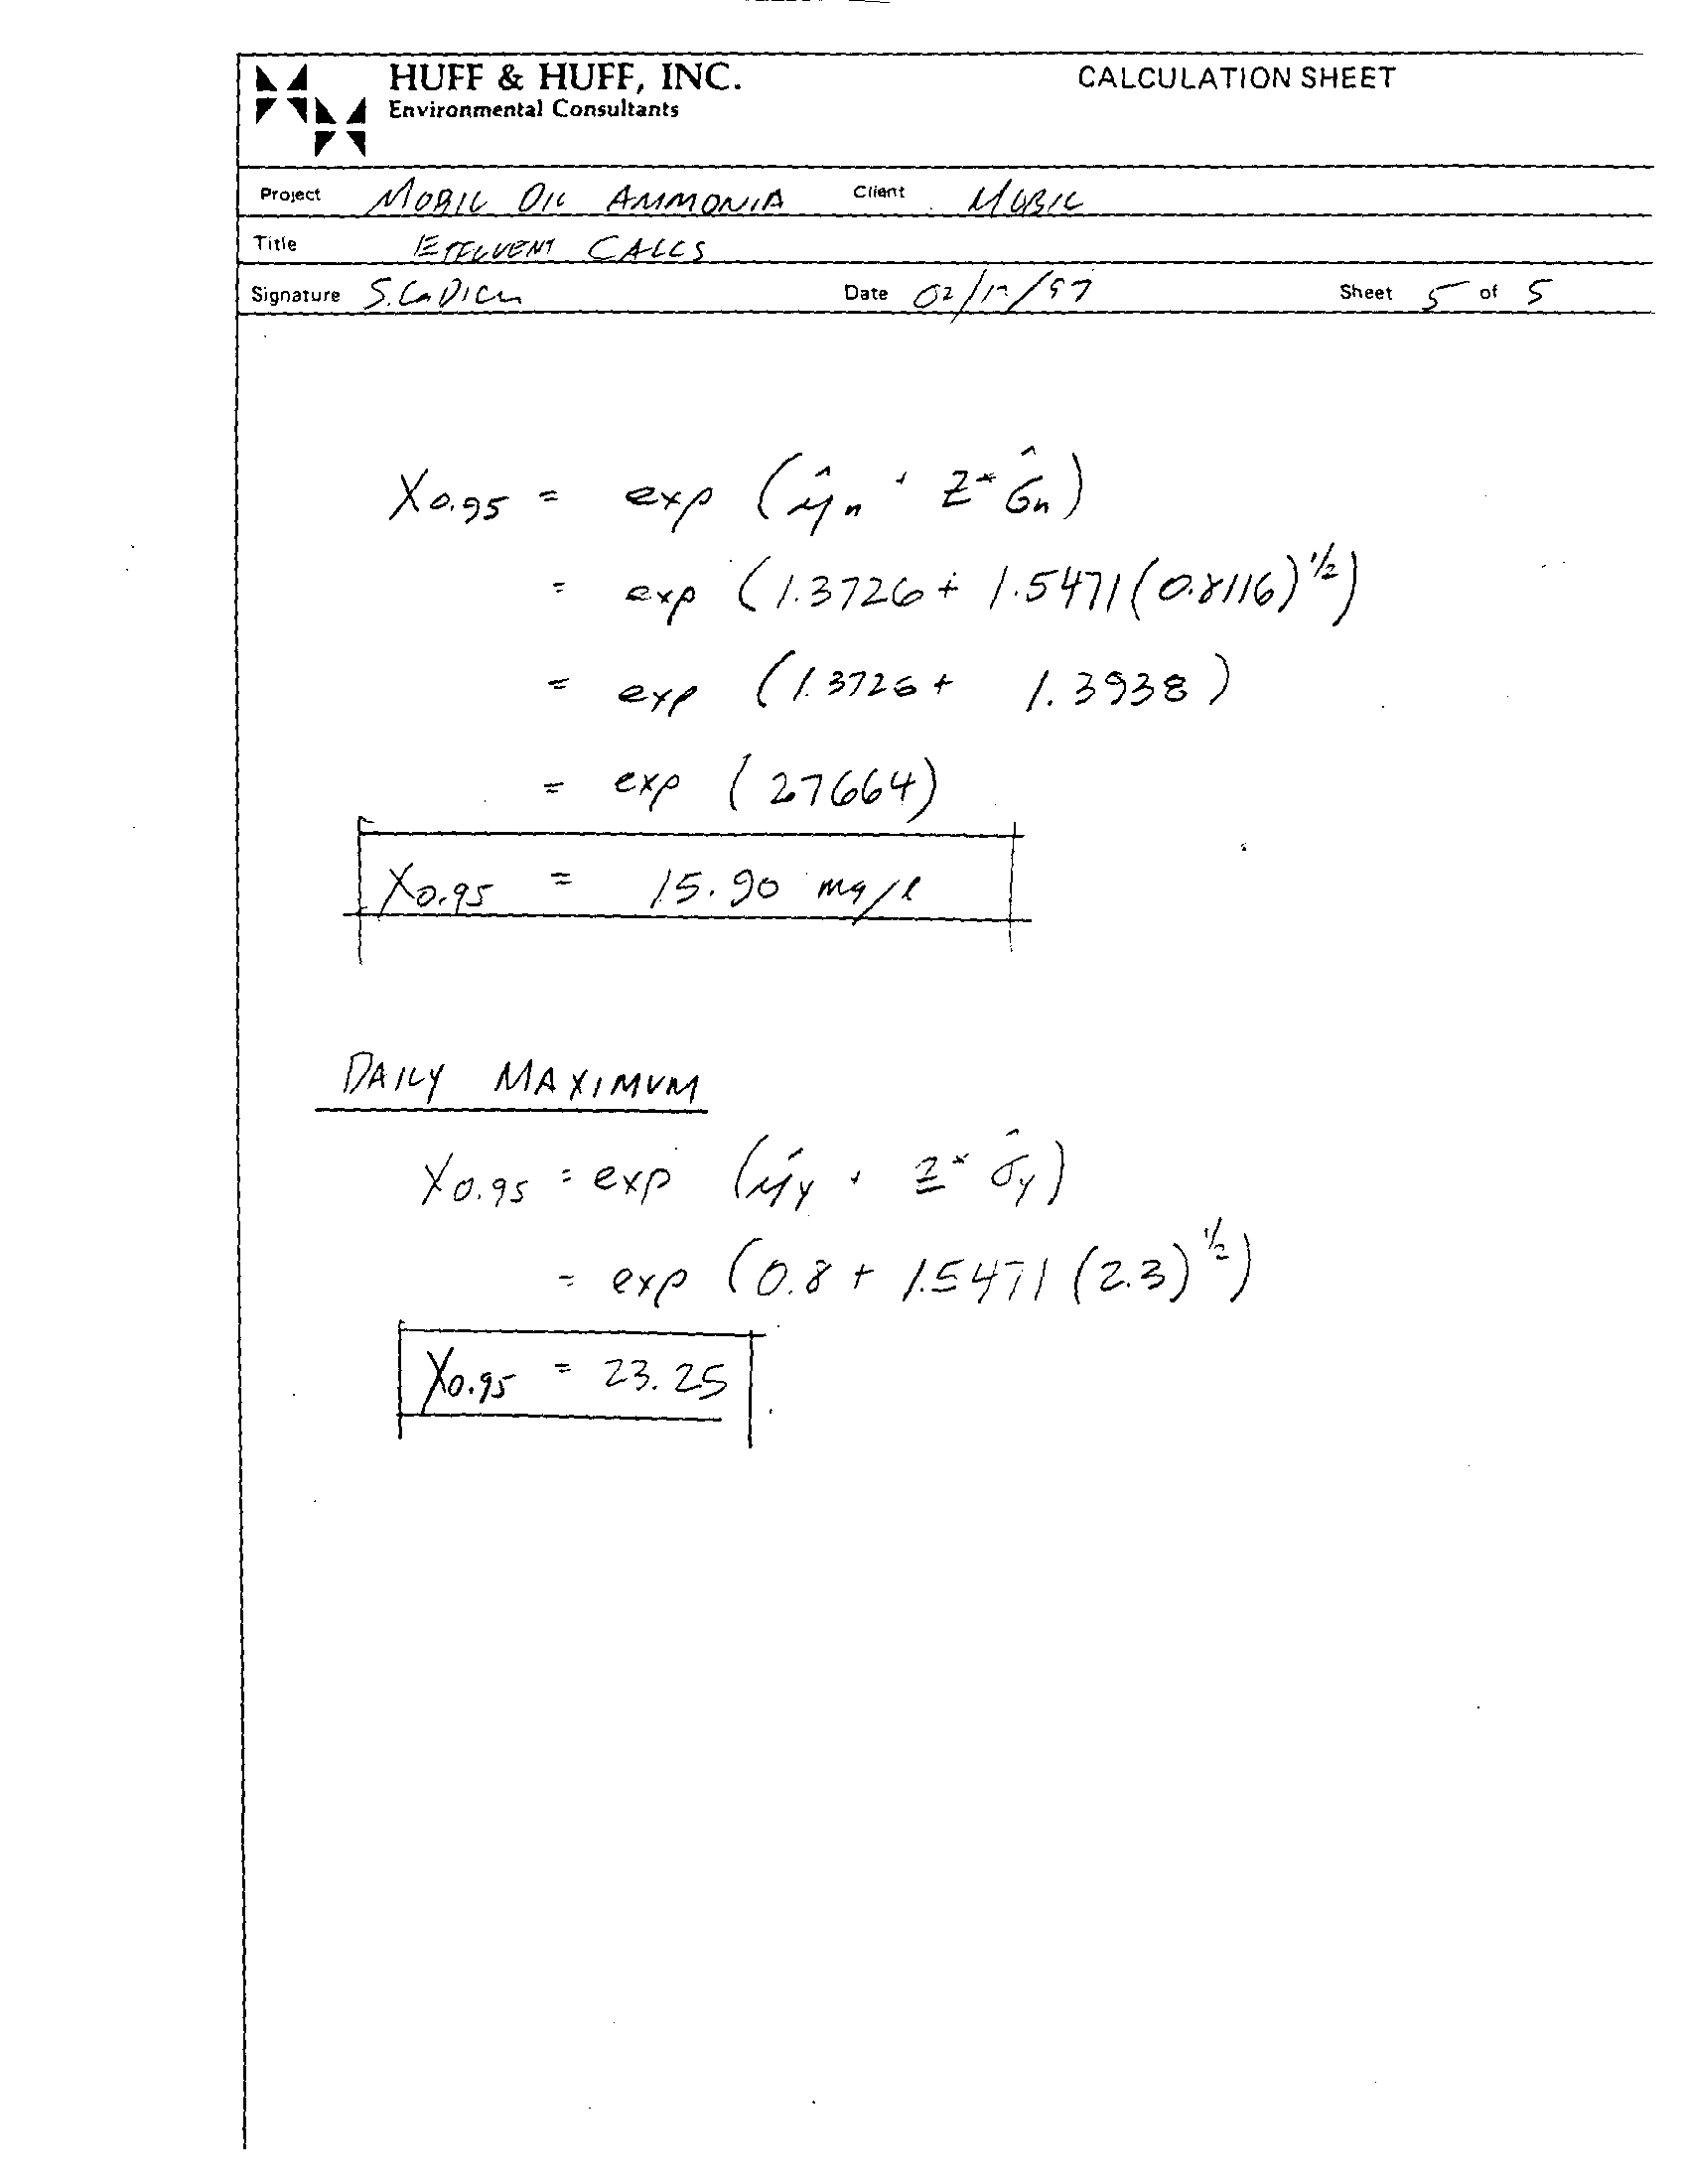 HUFF & HUFF, INC. CALCULATION SHEET
Environmental Consultants
Project MOBIL OIL AMMONIA Client MOBIL
Title EFFLUENT CALCS
Signature Date 02/ /97 Sheet 5 of 5
X0.95 = exp (μ̂n + Z* σ̂n)
= exp (1.3726 + 1.5471(0.8116)^1/2)
= exp (1.3726 + 1.3938)
= exp (27664)
X0.95 = 15.90 mg/l
DAILY MAXIMUM
X0.95 = exp (μ̂y + Z* σ̂y)
= exp (0.8 + 1.5471 (2.3)^1/2)
X0.95 = 23.25